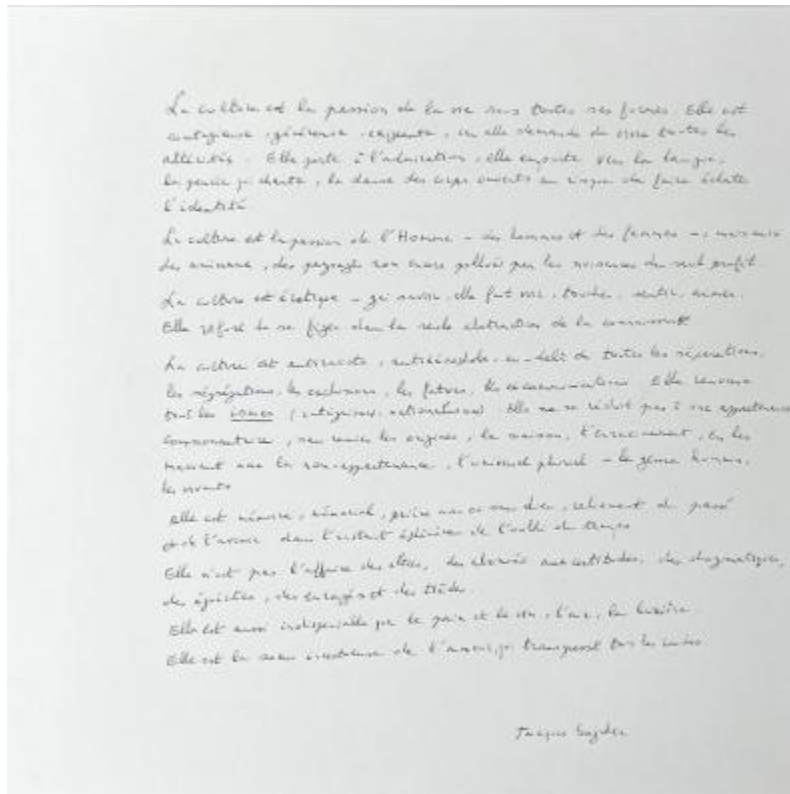 La culture est la passion de la vie sous toutes ses formes. Elle est
contagieuse, généreuse, exigeante, car elle demande de vivre toutes les
altérités. Elle porte à l'admiration, elle emporte vers la langue,
la pensée qui chante, la danse des corps ouverts au risque de faire éclater
l'identité.
La culture est la passion de l'Homme - des hommes et des femmes -, mais aussi
des animaux, des paysages non encore pollués par les nuisances du seul profit.
La culture est érotique - gai savoir, elle fait voir, toucher, sentir, aimer.
Elle refuse de se figer dans la seule abstraction de la
La culture est antiraciste, au-delà de toutes les séparations,
les ségrégations, les exclusions, les fatwas, les excommunications. Elle
tous les ismes (intégrismes, nationalismes). Elle ne se réduit pas à une appartenance
communautaire, les origines, la maison, l'enracinement, en les
la non-appartenance, l'universel pluriel - le genre humain,
les vivants.
Elle est mémoire, mémorial, prière sans dieu, du passé
et de l'avenir dans l'instant éphémère de l'oubli du temps.
Elle n'est pas l'affaire des des aux certitudes, des dogmatiques,
des égoïstes, des enragés et des tièdes.
Elle est aussi indispensable que le pain et le vin, l'air, la lumière.
Elle est la sœur de l'amour, qui transgresse tous les
Jacques